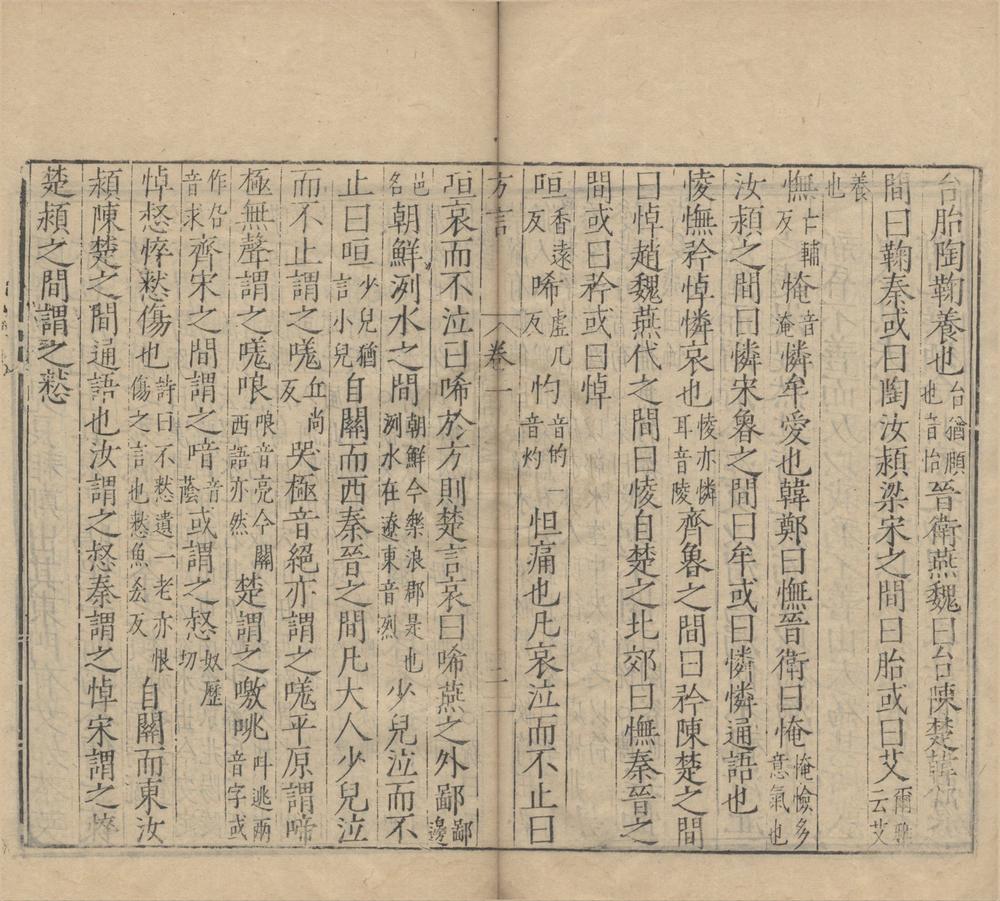 台胎陶鞠養也台猶頤也音怡晉衛燕魏曰台陳楚韓鄭之
間曰鞠秦或曰陶汝潁梁宋之間曰胎或曰艾爾雅云艾
養也
憮亡輔反㤿音淹憐牟愛也韓鄭曰憮晉衛曰㤿㤿憸多意氣也
汝潁之間曰憐宋魯之間曰牟或曰憐憐通語也
㥄憮矜悼憐哀也㥄亦憐耳音陵齊魯之間曰矜陳楚之間
曰悼趙魏燕代之間曰㥄自楚之北郊曰憮秦晉之
間或曰矜或曰悼
咺香遠反唏虛几反㣿音的一音灼怛痛也凡哀泣而不止曰
方言 卷一 二
咺哀而不泣曰唏於方則楚言哀曰唏燕之外鄙鄙邊
邑名朝鮮洌水之間朝鮮今樂浪郡是也洌水在遼東音烈少兒泣而不
止曰咺少兒猶言小兒自關而西秦晉之間凡大人少兒泣
而不止謂之嗟丘尚反哭極音絕亦謂之嗟平原謂啼
極無聲謂之嗟哴哴音亮今關西語亦然楚謂之噭咷叫逃兩音字或
作㕦音求齊宋之間謂之喑音蔭或謂之惄奴歷切
悼惄悴憖傷也詩曰不憖遺一老亦恨傷之言也憖魚忝反自關而東汝
潁陳楚之間通語也汝謂之惄秦謂之悼宋謂之悴
楚潁之間謂之憖